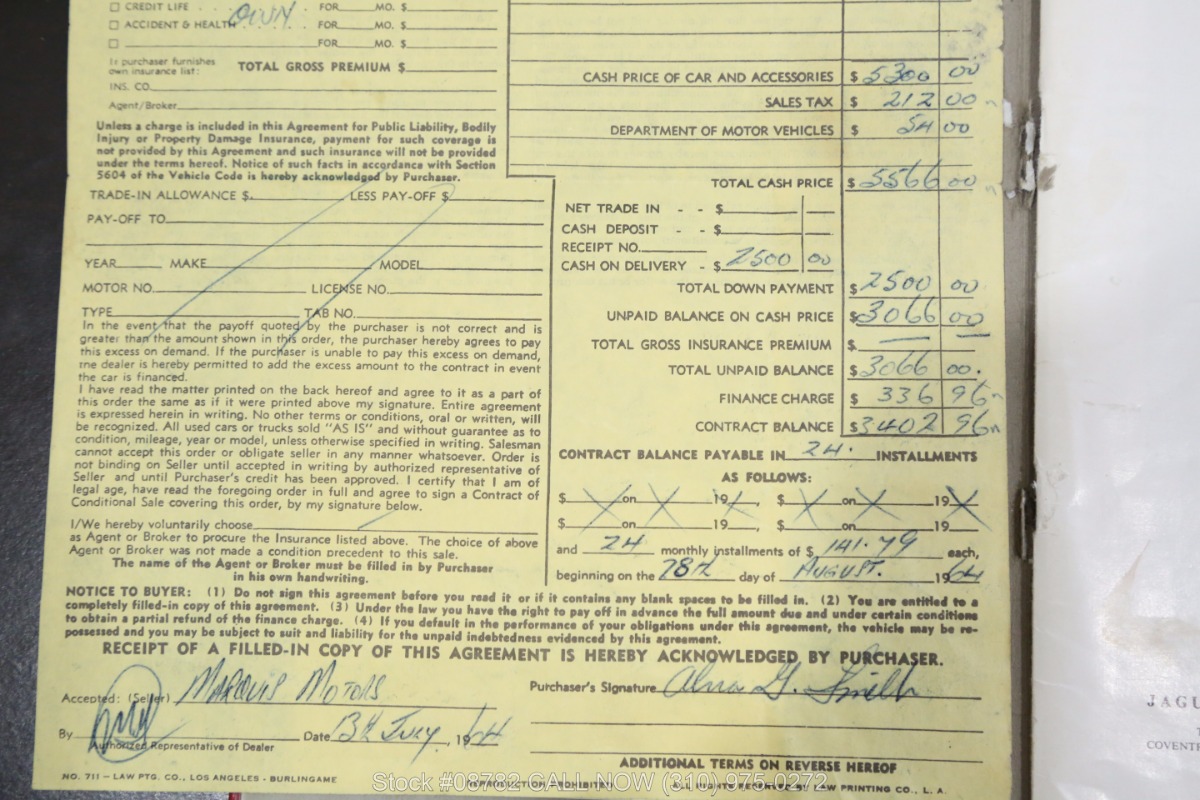 ☐ CREDIT LIFE . . . . FOR MO. $
☐ ACCIDENT & HEALTH OWN FOR MO. $
☐ FOR MO. $
If purchaser furnishes
own insurance list: TOTAL GROSS PREMIUM $
INS. CO.
Agent/Broker
Unless a charge is included in this Agreement for Public Liability, Bodily
Injury or Property Damage Insurance, payment for such coverage is
not provided by this Agreement and such insurance will not be provided
under the terms hereof. Notice of such facts in accordance with Section
5604 of the Vehicle Code is hereby acknowledged by Purchaser.
CASH PRICE OF CAR AND ACCESSORIES $ 5300 00
SALES TAX $ 212 00
DEPARTMENT OF MOTOR VEHICLES $ 54 00
TOTAL CASH PRICE $ 5566 00
TRADE-IN ALLOWANCE $ LESS PAY-OFF $
PAY-OFF TO
YEAR MAKE MODEL
MOTOR NO. LICENSE NO.
TYPE TAB NO.
In the event that the payoff quoted by the purchaser is not correct and is
greater than the amount shown in this order, the purchaser hereby agrees to pay
this excess on demand. If the purchaser is unable to pay this excess on demand,
the dealer is hereby permitted to add the excess amount to the contract in event
the car is financed.
I have read the matter printed on the back hereof and agree to it as a part of
this order the same as if it were printed above my signature. Entire agreement
is expressed herein in writing. No other terms or conditions, oral or written, will
be recognized. All used cars or trucks sold "AS IS" and without guarantee as to
condition, mileage, year or model, unless otherwise specified in writing. Salesman
cannot accept this order or obligate seller in any manner whatsoever. Order is
not binding on Seller until accepted in writing by authorized representative of
Seller and until Purchaser's credit has been approved. I certify that I am of
legal age, have read the foregoing order in full and agree to sign a Contract of
Conditional Sale covering this order, by my signature below.
I/We hereby voluntarily choose
as Agent or Broker to procure the Insurance listed above. The choice of above
Agent or Broker was not made a condition precedent to this sale.
The name of the Agent or Broker must be filled in by Purchaser
in his own handwriting.
NET TRADE IN - - $
CASH DEPOSIT - - $
RECEIPT NO.
CASH ON DELIVERY - $ 2500 00
TOTAL DOWN PAYMENT $ 2500 00
UNPAID BALANCE ON CASH PRICE $ 3066 00
TOTAL GROSS INSURANCE PREMIUM $ — —
TOTAL UNPAID BALANCE $ 3066 00.
FINANCE CHARGE $ 336 96
CONTRACT BALANCE $ 3402 96
CONTRACT BALANCE PAYABLE IN 24. INSTALLMENTS
AS FOLLOWS:
$ X on X 19 X, $ X on X 19 X
$ on 19 , $ on 19
and 24 monthly installments of $ 141.79 each,
beginning on the 28th day of AUGUST. 1964
NOTICE TO BUYER: (1) Do not sign this agreement before you read it or if it contains any blank spaces to be filled in. (2) You are entitled to a
completely filled-in copy of this agreement. (3) Under the law you have the right to pay off in advance the full amount due and under certain conditions
to obtain a partial refund of the finance charge. (4) If you default in the performance of your obligations under this agreement, the vehicle may be re-
possessed and you may be subject to suit and liability for the unpaid indebtedness evidenced by this agreement.
RECEIPT OF A FILLED-IN COPY OF THIS AGREEMENT IS HEREBY ACKNOWLEDGED BY PURCHASER.
Accepted: (Seller) MARQUIS MOTORS Purchaser's Signature G. Smith
By Date 13th July, 1964
Authorized Representative of Dealer
ADDITIONAL TERMS ON REVERSE HEREOF
NO. 711 - LAW PTG. CO., LOS ANGELES - BURLINGAME REPRODUCTION PROHIBITED ALL RIGHTS RESERVED BY LAW PRINTING CO., L. A.
Stock #08782 CALL NOW (310) 975-0272
JAGU
COVENT